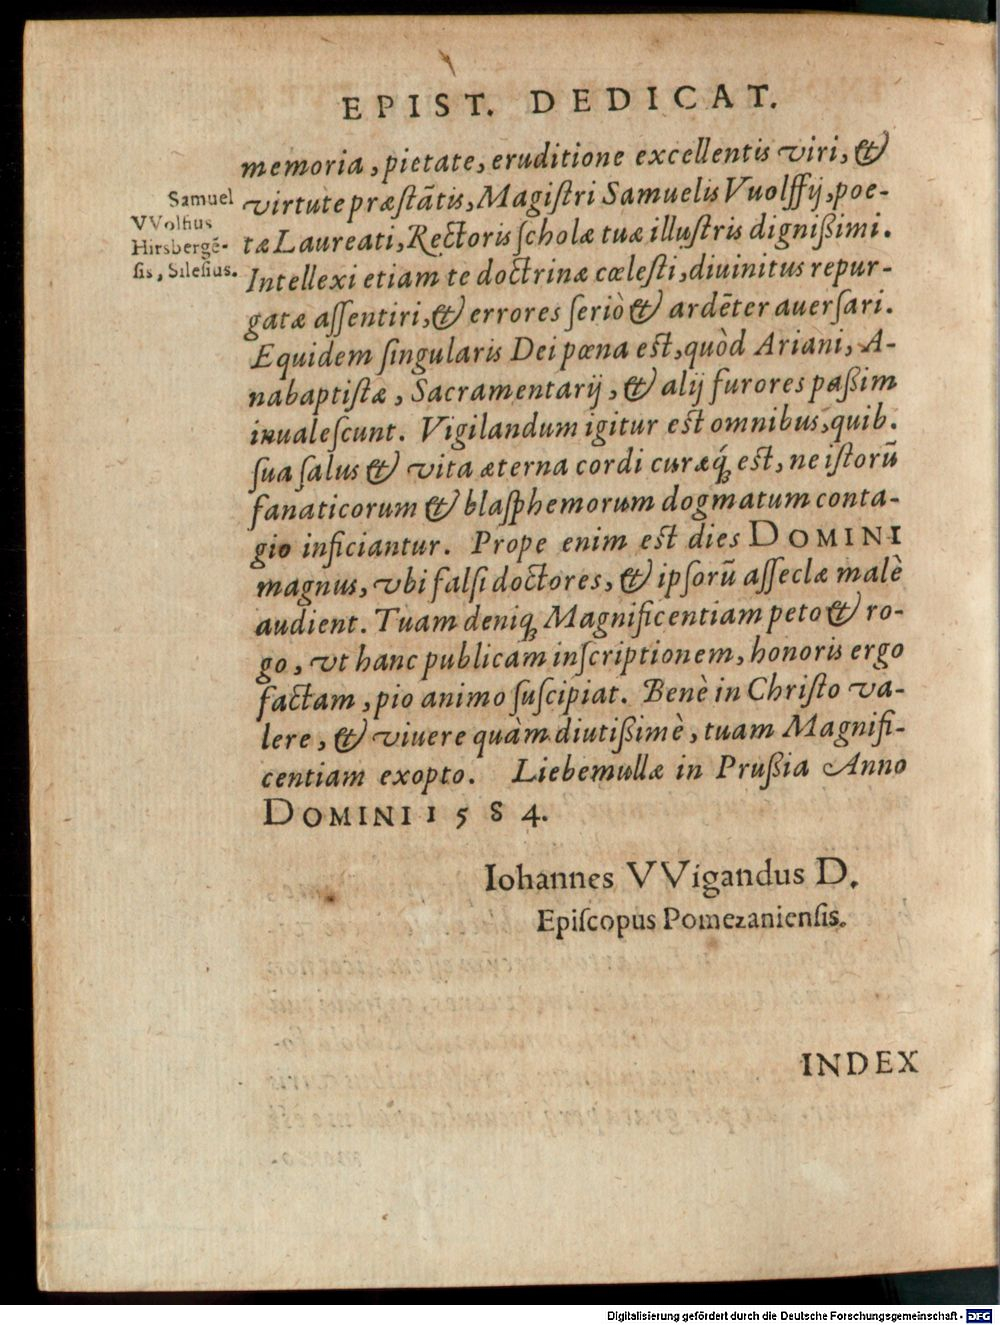 EPIST. DEDICAT.
memoria, pietate, eruditione excellentis viri, &
virtute præstātis, Magistri Samuelis Vuolffij, poe-
tæ Laureati, Rectoris scholæ tuæ illustris dignißimi.
Samuel
VVolfius
Hirsbergē-
sis, Silesius.
Intellexi etiam te doctrinæ cœlesti, diuinitus repur-
gatæ assentiri, & errores seriò & ardēter auersari.
Equidem singularis Dei pœna est, quòd Ariani, A-
nabaptistæ, Sacramentarij, & alij furores paßim
inualescunt. Vigilandum igitur est omnibus, quib.
sua salus & vita æterna cordi curæq́; est, ne istorū
fanaticorum & blasphemorum dogmatum conta-
gio inficiantur. Prope enim est dies DOMINI
magnus, vbi falsi doctores, & ipsorū asseclæ malè
audient. Tuam deniq; Magnificentiam peto & ro-
go, vt hanc publicam inscriptionem, honoris ergo
factam, pio animo suscipiat. Benè in Christo va-
lere, & viuere quàm diutißimè, tuam Magnifi-
centiam exopto. Liebemullæ in Prußia Anno
DOMINI 1584.
Iohannes VVigandus D.
Episcopus Pomezaniensis.
INDEX
Digitalisierung gefördert durch die Deutsche Forschungsgemeinschaft - DFG